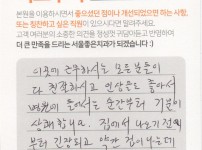 본원을 이용하시면서 좋으셨던 점이나 개선되었으면 하는 사항,
또는 칭찬하고 싶은 직원이 있으시다면 말씀해주세요.
고객 여러분의 소중한 의견을 정성껏 귀담아듣고 반영하여
더 큰 만족을 드리는 서울좋은치과가 되겠습니다 :)
이곳에 근무하시는 모든분들이
다 친절하시고 인상들도 좋아서
들어서는 순간부터 기분이
상쾌합니다. 집에서 나오기 전
부터 긴장되고 약간 겁이나는데